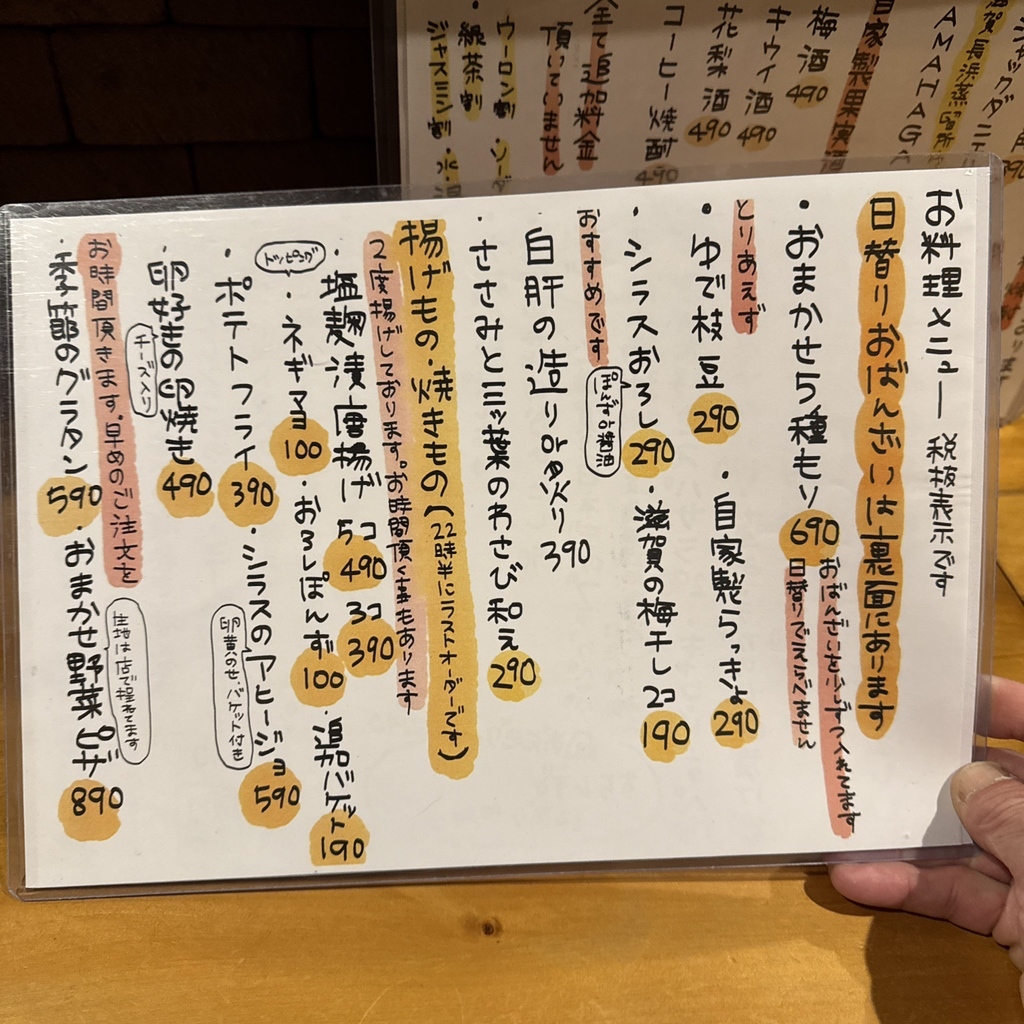 お料理メニュー 税抜表示です
日替りおばんざいは裏面にあります
・おまかせ5種もり 690
おばんざいを少しずつ入れてます
日替りでえらべません
とりあえず
・ゆで枝豆 290 ・自家製らっきょ 290
・シラスおろし 290 ・滋賀の梅干し 2コ 190
ぽんずor醤油
おすすめです
白肝の造りor炙り 390
・ささみと三ッ葉のわさび和え 290
揚げもの・焼きもの(22時半にラストオーダーです)
2度揚げしております。お時間頂く事もあります
塩麹漬唐揚げ 5コ 490 3コ 390
トッピング
・ネギマヨ 100 ・おろしぽんず 100 追加バケット 190
・ポテトフライ 390 ・シラスのアヒージョ 590
卵黄のせ、バケット付き
卵好きの卵焼き 490
チーズ入り
お時間頂きます。早めのご注文を
・季節のグラタン 590 ・おまかせ野菜ピザ 890
生地は店で捏ねてます
ジャックダニ
滋賀長浜蒸留所
AMAHAGA
自家製果実酒
梅酒 490
キウイ酒 490
花梨酒 490
コーヒー焼酎 490
全て追加料金
頂いていません
・ウーロン割・ソーダ
・緑茶割
ジャスミン割・水